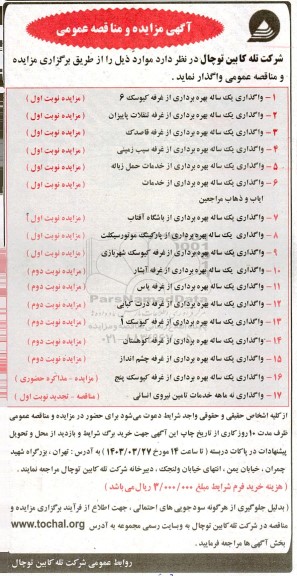 آگهی مزایده و مناقصه عمومی
شرکت تله کابین توچال در نظر دارد موارد ذیل را از طریق برگزاری مزایده
و مناقصه عمومی واگذار نماید .
۱ - واگذاری یک ساله بهره برداری از غرفه کیوسک ۶ ( مزایده نوبت اول )
۲ - واگذاری یک ساله بهره برداری از غرفه تنقلات پاییزان ( مزایده نوبت اول )
۳ - واگذاری یک ساله بهره برداری از غرفه قاصدک ( مزایده نوبت اول )
۴ - واگذاری یک ساله بهره برداری از غرفه سیب زمینی ( مزایده نوبت اول )
۵ - واگذاری یک ساله بهره برداری از خدمات حمل زباله ( مزایده نوبت اول )
۶ - واگذاری یک ساله بهره برداری از خدمات ( مزایده نوبت اول )
ایاب و ذهاب مراجعین
۷ - واگذاری یک ساله بهره برداری از باشگاه آفتاب ( مزایده نوبت اول )
۸ - واگذاری یک ساله بهره برداری از پارکینگ موتورسیکلت ( مزایده نوبت اول )
۹ - واگذاری یک ساله بهره برداری از غرفه کیوسک شهربازی ( مزایده نوبت اول )
۱۰ - واگذاری یک ساله بهره برداری از غرفه آبشار ( مزایده نوبت دوم )
۱۱ - واگذاری یک ساله بهره برداری از غرفه یاس ( مزایده نوبت دوم )
۱۲ - واگذاری یک ساله بهره برداری از غرفه ذرت کبابی ( مزایده نوبت دوم )
۱۳ - واگذاری یک ساله بهره برداری از غرفه کیوسک ۱ ( مزایده نوبت دوم )
۱۴ - واگذاری یک ساله بهره برداری از غرفه کوهستان ( مزایده نوبت دوم )
۱۵ - واگذاری یک ساله بهره برداری از غرفه چشم انداز ( مزایده نوبت دوم )
۱۶ - واگذاری یک ساله بهره برداری از غرفه کیوسک پنج ( مزایده - مذاکره حضوری )
۱۷ - واگذاری نه ماهه خدمات تامین نیروی انسانی ( مناقصه - تجدید نوبت اول )
از کلیه اشخاص حقیقی و حقوقی واجد شرایط دعوت می‌شود برای حضور در مزایده و مناقصه عمومی
ظرف مدت ۱۰ روز کاری از تاریخ چاپ این آگهی جهت خرید برگ شرایط و بازدید از محل و تحویل
پیشنهادات در پاکات دربسته ( تا ساعت ۱۴ مورخ ۱۴۰۳/۰۳/۲۷ ) به آدرس : تهران ، بزرگراه شهید
چمران ، خیابان یمن ، انتهای خیابان ولنجک ، دبیرخانه شرکت تله کابین توچال مراجعه نمایند .
( هزینه خرید فرم شرایط مبلغ ۳/۰۰۰/۰۰۰ ریال می‌باشد )
( بدلیل جلوگیری از هرگونه سودجویی های احتمالی ، جهت اطلاع از فرآیند برگزاری مزایده و
مناقصه در شرکت تله کابین توچال به وبسایت رسمی مجموعه به آدرس www.tochal.org
بخش آگهی ها مراجعه فرمایید .
روابط عمومی شرکت تله کابین توچال